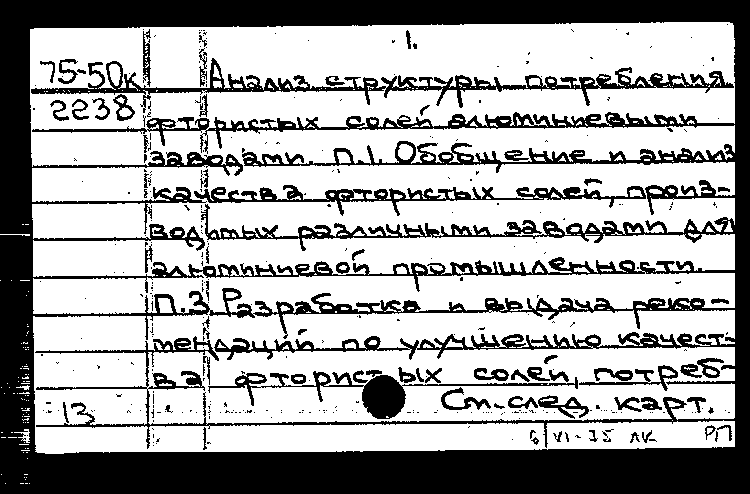 1.
75-50к Анализ структуры потребления
2238 фтористых солей алюминиевыми
заводами. П.1. Обобщение и анализ
качества фтористых солей, произ-
водимых различными заводами для
алюминиевой промышленности.
П.3. Разработка и выдача реко-
мендаций по улучшению качест-
ва фтористых солей, потреб-
13 См. след. карт.
6 VI-75 ЛК РП